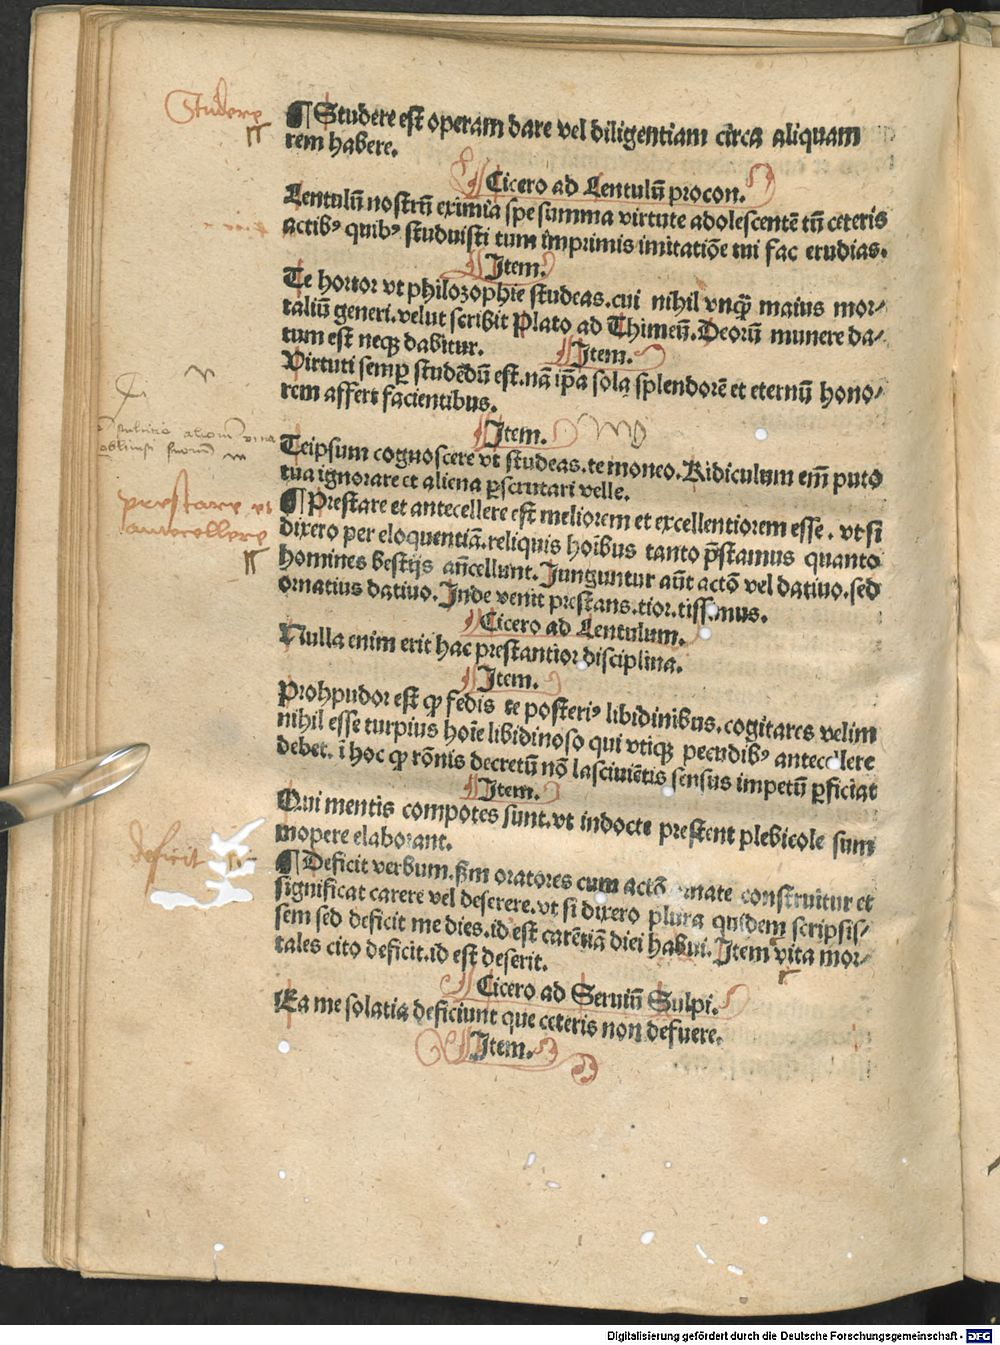 Studere
¶ Studere est operam dare vel diligentiam circa aliquam
rem habere.
¶ Cicero ad Lentulū procon.
Lentulū nostrū eximia spe summa virtute adolescentē tū ceteris
actibꝰ quibꝰ studuisti tum imprimis imitatiōe tui fac erudias.
¶ Item.
Te hortor vt philozophie studeas.cui nihil vnqꝫ maius mor⸗
taliū generi.velut scribit Plato ad Thimeū.Deorū munere da⸗
tum est neqꝫ dabitur.
¶ Item.
Virtuti semꝑ studēdū est.nā ip̄a sola splendorē et eternū hono⸗
rem affert facientibus.
¶ Item.
Teipsum cognoscere vt studeas.te moneo.Ridiculum em̄ puto
tua ignorare et aliena ꝑscrutari velle.
prestare et
antecellere
¶ Prestare et antecellere est meliorem et excellentiorem esse. vt si
dixero per eloquentiā.reliquis hoībus tanto p̄stamus quanto
homines bestijs an̄cellunt. Junguntur aūt actō vel datiuo.sed
ornatius datiuo. Inde venit prestans.tior.tissimus.
¶ Cicero ad Lentulum.
Nulla enim erit hac prestantior disciplina.
¶ Item.
Prohpudor est ꝙ fedis te posteriꝰ libidinibus.cogitares velim
nihil esse turpius hoīe libidinoso qui vtiqꝫ pecudibꝰ antecellere
debet. ī hoc ꝙ rōnis decretū nō lasciuiētis sensus impetū ꝑficiat
¶ Item.
Qui mentis compotes sunt.vt indocte prestent plebicole sum
mopere elaborant.
deficit
¶ Deficit verbum.ẜm oratores cum actō ornate construitur et
significat carere vel deserere.vt si dixero plura quidem scripsis⸗
sem sed deficit me dies.id est carētiā diei habui. Item vita mor⸗
tales cito deficit.id est deserit.
¶ Cicero ad Seruiū Sulpi.
Ea me solatia deficiunt que ceteris non defuere.
¶ Item.
Digitalisierung gefördert durch die Deutsche Forschungsgemeinschaft - DFG